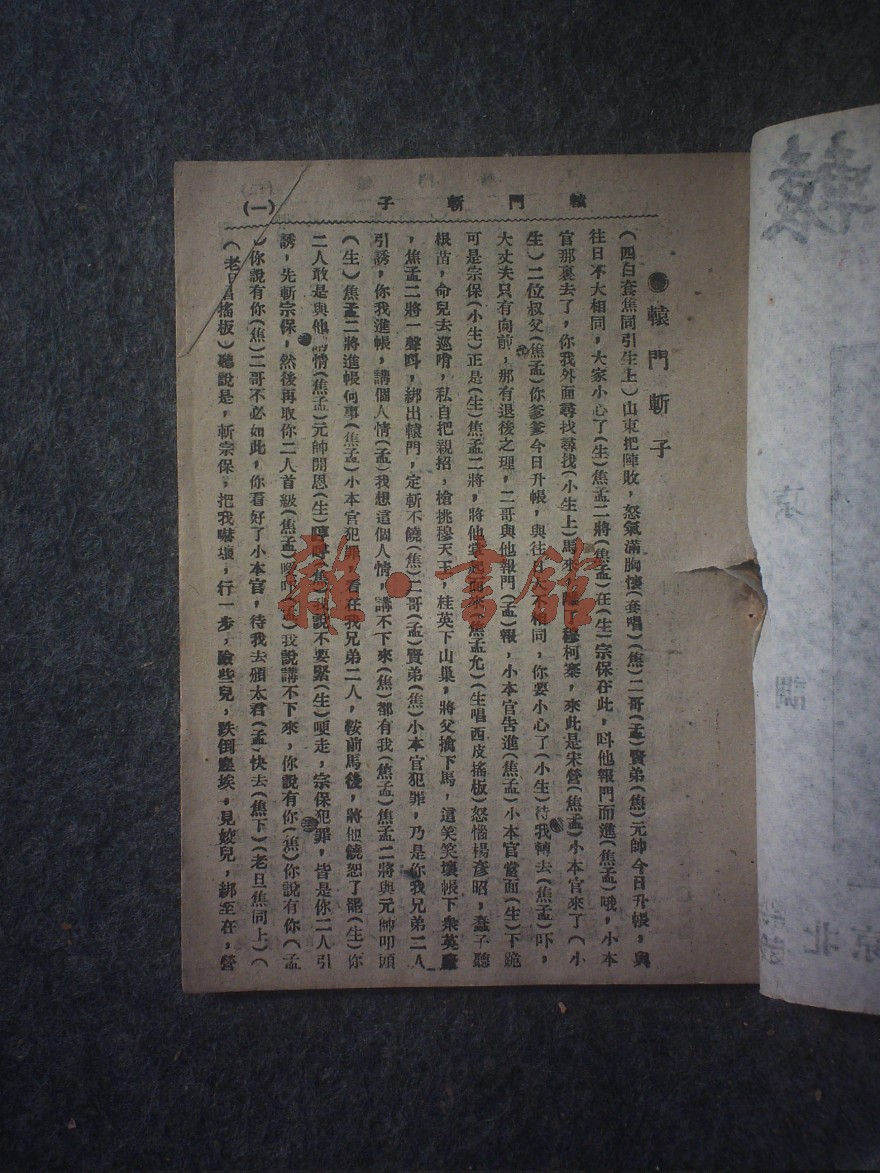 轅門斬子
(一)
轅門斬子
(四白套焦同引生上)山東把陣敗,怒氣滿胸懷(套唱)(焦)二哥(孟)賢弟(焦)元帥今日升帳,與
往日不大相同,大家小心了(生)焦孟二將(焦孟)在(生)宗保在此,呌他報門而進(焦孟)哦,小本
官那裏去了,你我外面尋找尋找(小生上)馬來,離了穆柯寨,來此是宋營(焦孟)小本官來了(小
生)二位叔父(焦孟)你爹爹今日升帳,與往日大不相同,你要小心了(小生)待我轉去(焦孟)吓,
大丈夫只有向前,那有退後之理,二哥與他報門(孟)報,小本官告進(焦孟)小本官當面(生)下跪
可是宗保(小生)正是(生)焦孟二將,將他掌起面來(焦孟允)(生唱西皮搖板)怒惱楊彥昭,蠢子聽
根苗,命兒去巡哨,私自把親招,槍挑穆天王,桂英下山巢,將父擒下馬,這笑笑壞帳下衆英豪
,焦孟二將一聲呌,綁出轅門,定斬不饒(焦)二哥(孟)賢弟(焦)小本官犯罪,乃是你我兄弟二人
引誘,你我進帳,講個人情(孟)我想這個人情,講不下來(焦)都有我(焦孟)焦孟二將與元帥叩頭
(生)焦孟二將進帳何事(焦孟)小本官犯罪,看在我兄弟二人,鞍前馬後,將他饒恕了罷(生)你
二人敢是與他講情(焦孟)元帥開恩(生)哼哼(焦)我說不要緊(生)哽走,宗保犯罪,皆是你二人引
誘,先斬宗保,然後再取你二人首級(焦孟)(孟)我說講不下來,你說有你(焦)你說有你(孟
)你說有你(焦)二哥不必如此,你看好了小本官,待我去頒太君(孟)快去(焦下)(老旦焦同上)(
(老旦唱搖板)聽說是,斬宗保,把我嚇壞,行一步,險些兒,跌倒塵埃,見姣兒,綁至在,營
雜·書館
轅
京
調
北京